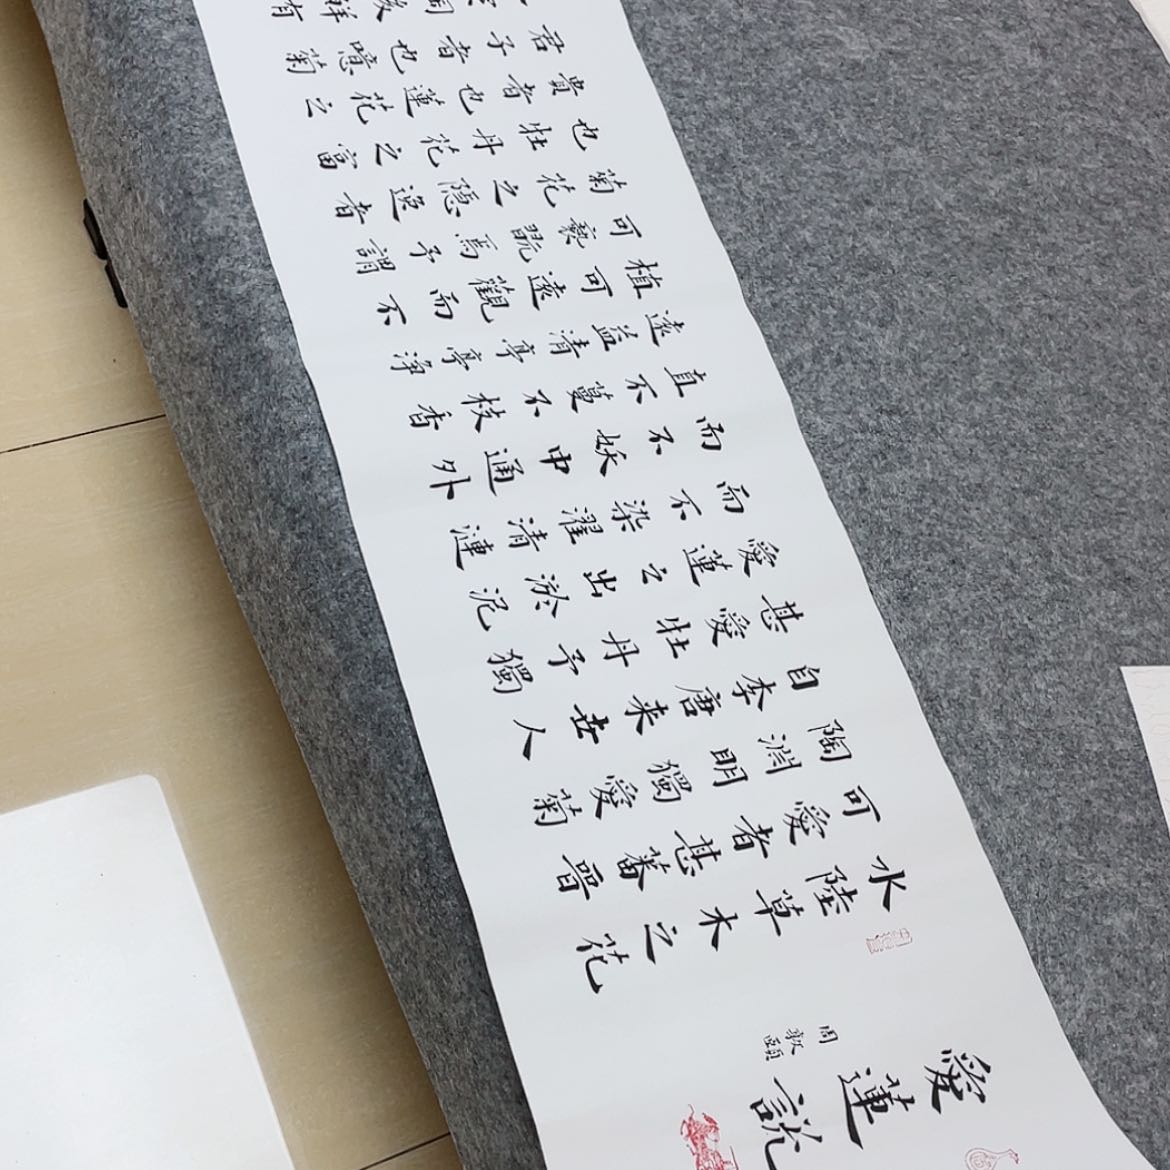 愛蓮說
周敦頤
水陸草木之花
可愛者甚蕃晉
陶淵明獨愛菊
自李唐来世人
甚愛牡丹予獨
愛蓮之出淤泥
而不染濯清漣
而不妖中通外
直不蔓不枝香
遠益清亭亭淨
植可遠觀而不
可褻翫焉予謂
菊花之隐逸者
也牡丹花之富
貴者也蓮花之
君子者也噫菊
陶後鮮有